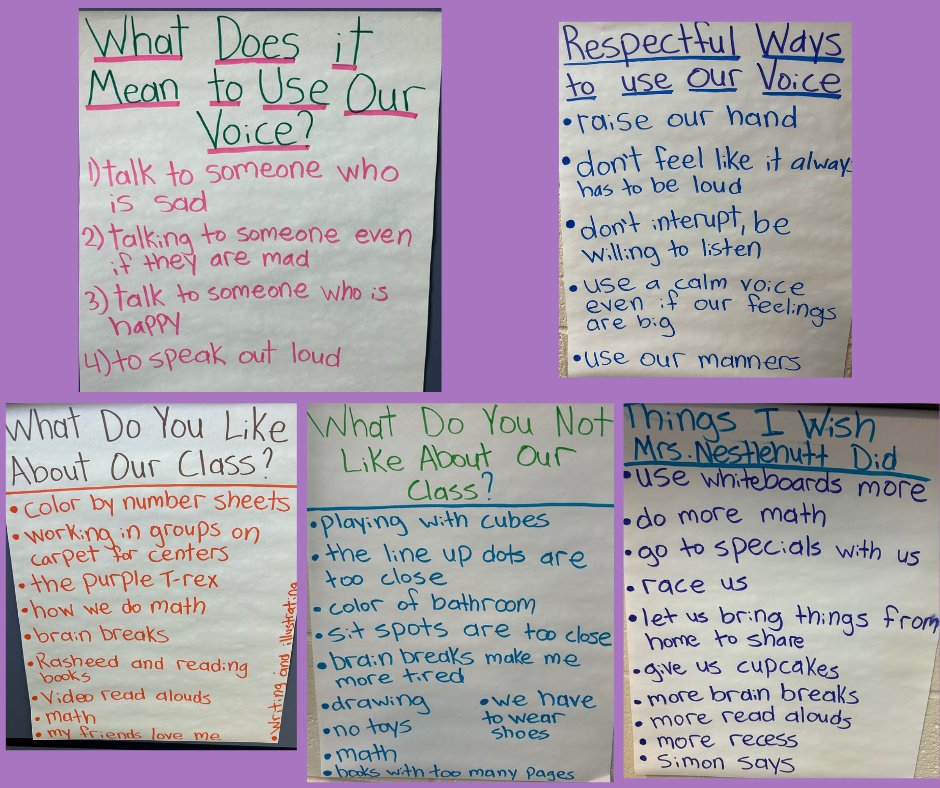 What Does it
Mean to Use Our
Voice?
1) talk to someone who
is sad
2) talking to someone even
if they are mad
3) talk to someone who is
happy
4) to speak out loud
Respectful Ways
to use our Voice
• raise our hand
• don't feel like it always
has to be loud
• don't interupt, be
willing to listen
• use a calm voice
even if our feelings
are big
• use our manners
What Do You Like
About Our Class?
• color by number sheets
• working in groups on
carpet for centers
• the purple T-rex
• how we do math
• brain breaks
• Rasheed and reading
books
• Video read alouds
• math
• my friends love me
• writing and illustrating
What Do You Not
Like About Our
Class?
• playing with cubes
• the line up dots are
too close
• color of bathroom
• sit spots are too close
• brain breaks make me
more tired
• drawing
• no toys
• math
• books with too many pages
• we have
to wear
shoes
Things I Wish
Mrs. Nestlehutt Did
• use whiteboards more
• do more math
• go to specials with us
• race us
• let us bring things from
home to share
• give us cupcakes
• more brain breaks
• more read alouds
• more recess
• Simon says